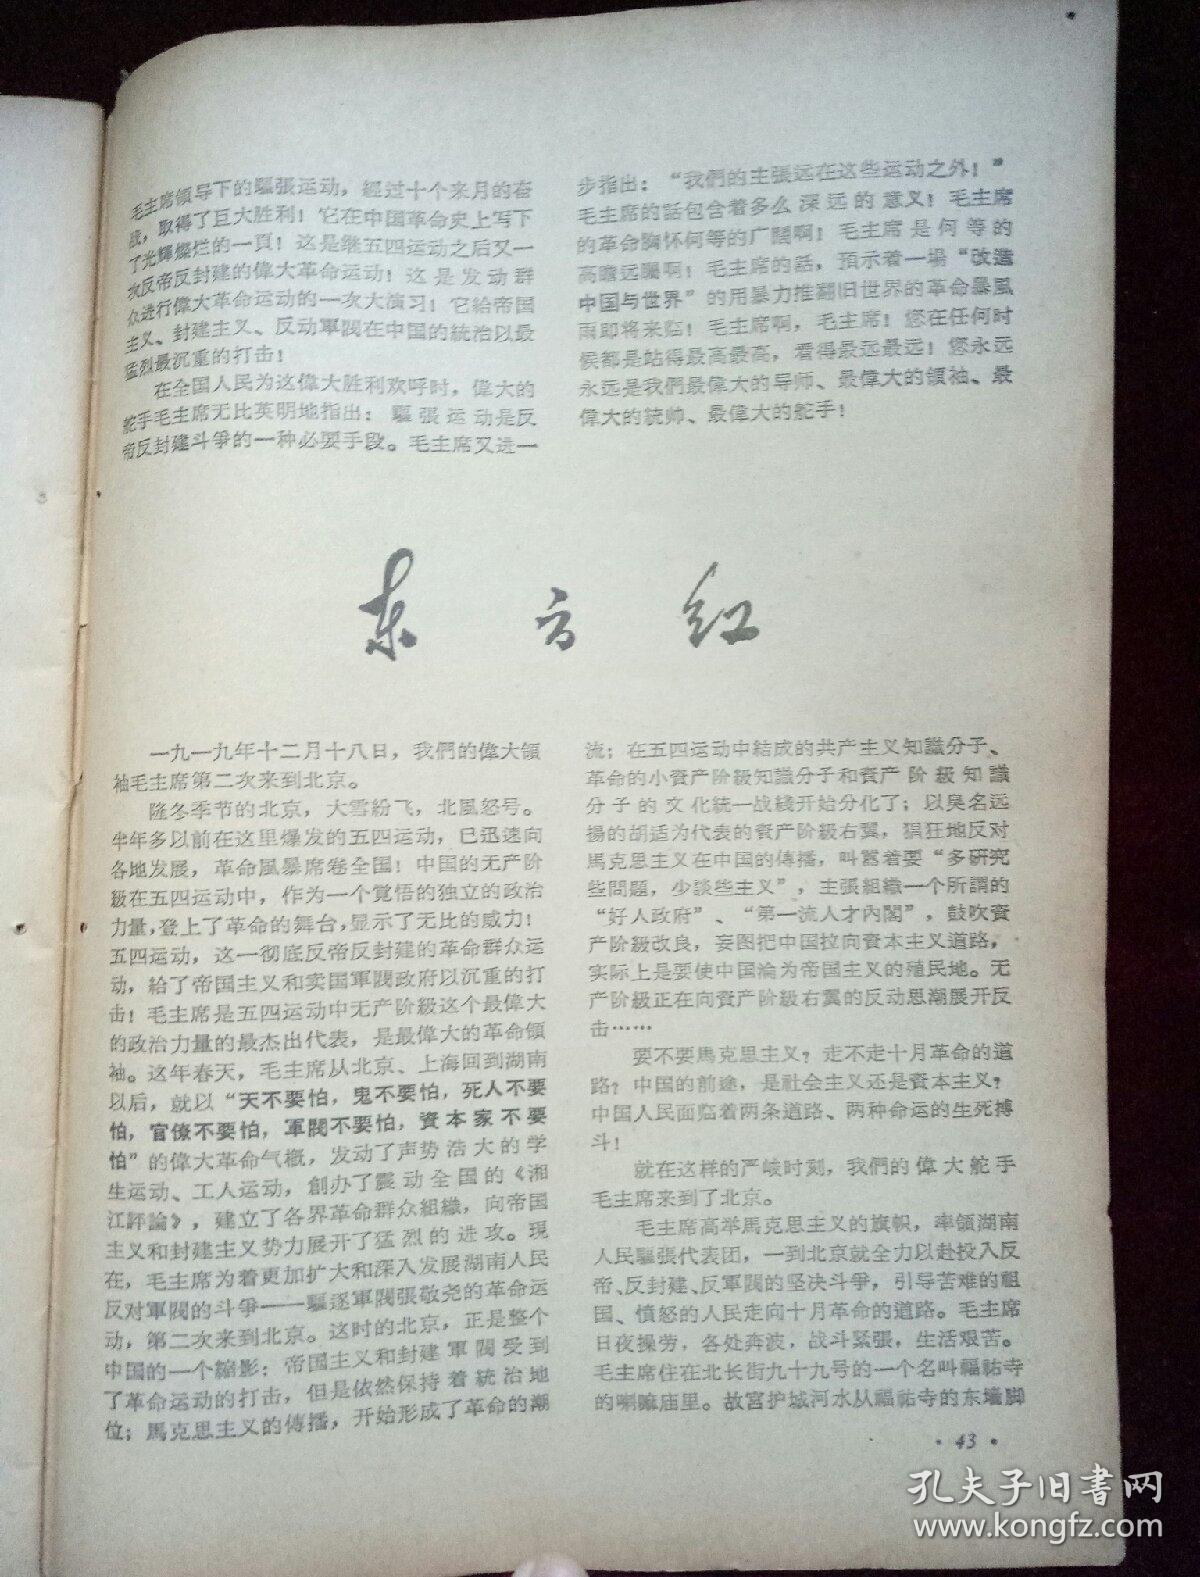 毛主席領导下的驅張运动，經过十个来月的奋
战，取得了巨大胜利！它在中国革命史上写下
了光輝燦烂的一頁！这是继五四运动之后又一
次反帝反封建的偉大革命运动！这是发动群
众进行偉大革命运动的一次大演习！它給帝国
主义、封建主义、反动軍閥在中国的統治以最
猛烈最沉重的打击！
在全国人民为这偉大胜利欢呼时，偉大的
舵手毛主席无比英明地指出：驅張运动是反
帝反封建斗爭的一种必要手段。毛主席又进一
步指出：“我們的主張远在这些运动之外！”
毛主席的話包含着多么深远的意义！毛主席
的革命胸怀何等的广闊啊！毛主席是何等的
高瞻远矚啊！毛主席的話，預示着一場“改造
中国与世界”的用暴力推翻旧世界的革命暴風
雨即将来临！毛主席啊，毛主席！您在任何时
候都是站得最高最高，看得最远最远！您永远
永远是我們最偉大的导师、最偉大的領袖、最
偉大的統帅、最偉大的舵手！
东方红
一九一九年十二月十八日，我們的偉大領
袖毛主席第二次来到北京。
隆冬季节的北京，大雪紛飞，北風怒号。
半年多以前在这里爆发的五四运动，已迅速向
各地发展，革命風暴席卷全国！中国的无产阶
級在五四运动中，作为一个覚悟的独立的政治
力量，登上了革命的舞台，显示了无比的威力！
五四运动，这一彻底反帝反封建的革命群众运
动，給了帝国主义和卖国軍閥政府以沉重的打
击！毛主席是五四运动中无产阶級这个最偉大
的政治力量的最杰出代表，是最偉大的革命領
袖。这年春天，毛主席从北京、上海回到湖南
以后，就以“天不要怕，鬼不要怕，死人不要
怕，官僚不要怕，軍閥不要怕，資本家不要
怕”的偉大革命气概，发动了声势浩大的学
生运动、工人运动，創办了震动全国的《湘
江評論》，建立了各界革命群众組織，向帝国
主义和封建主义势力展开了猛烈的进攻。現
在，毛主席为着更加扩大和深入发展湖南人民
反对軍閥的斗爭——驅逐軍閥張敬尧的革命运
动，第二次来到北京。这时的北京，正是整个
中国的一个縮影：帝国主义和封建軍閥受到
了革命运动的打击，但是依然保持着統治地
位；馬克思主义的傳播，开始形成了革命的潮
流；在五四运动中結成的共产主义知識分子、
革命的小資产阶級知識分子和資产阶級知識
分子的文化統一战綫开始分化了；以臭名远
揚的胡适为代表的資产阶級右翼，猖狂地反对
馬克思主义在中国的傳播，叫囂着要“多研究
些問題，少談些主义”，主張組織一个所謂的
“好人政府”、“第一流人才內閣”，鼓吹資
产阶級改良，妄图把中国拉向資本主义道路，
实际上是要使中国淪为帝国主义的殖民地。无
产阶級正在向資产阶級右翼的反动思潮展开反
击……
要不要馬克思主义？走不走十月革命的道
路？中国的前途，是社会主义还是資本主义？
中国人民面临着两条道路、两种命运的生死搏
斗！
就在这样的严峻时刻，我們的偉大舵手
毛主席来到了北京。
毛主席高举馬克思主义的旗帜，率領湖南
人民驅張代表团，一到北京就全力以赴投入反
帝、反封建、反軍閥的坚决斗爭，引导苦难的祖
国、愤怒的人民走向十月革命的道路。毛主席
日夜操劳，各处奔波，战斗紧張，生活艰苦。
毛主席住在北长街九十九号的一个名叫福祐寺
的喇嘛庙里。故宮护城河水从福祐寺的东墙脚
· 43 ·
孔夫子旧書网
www.kongfz.com